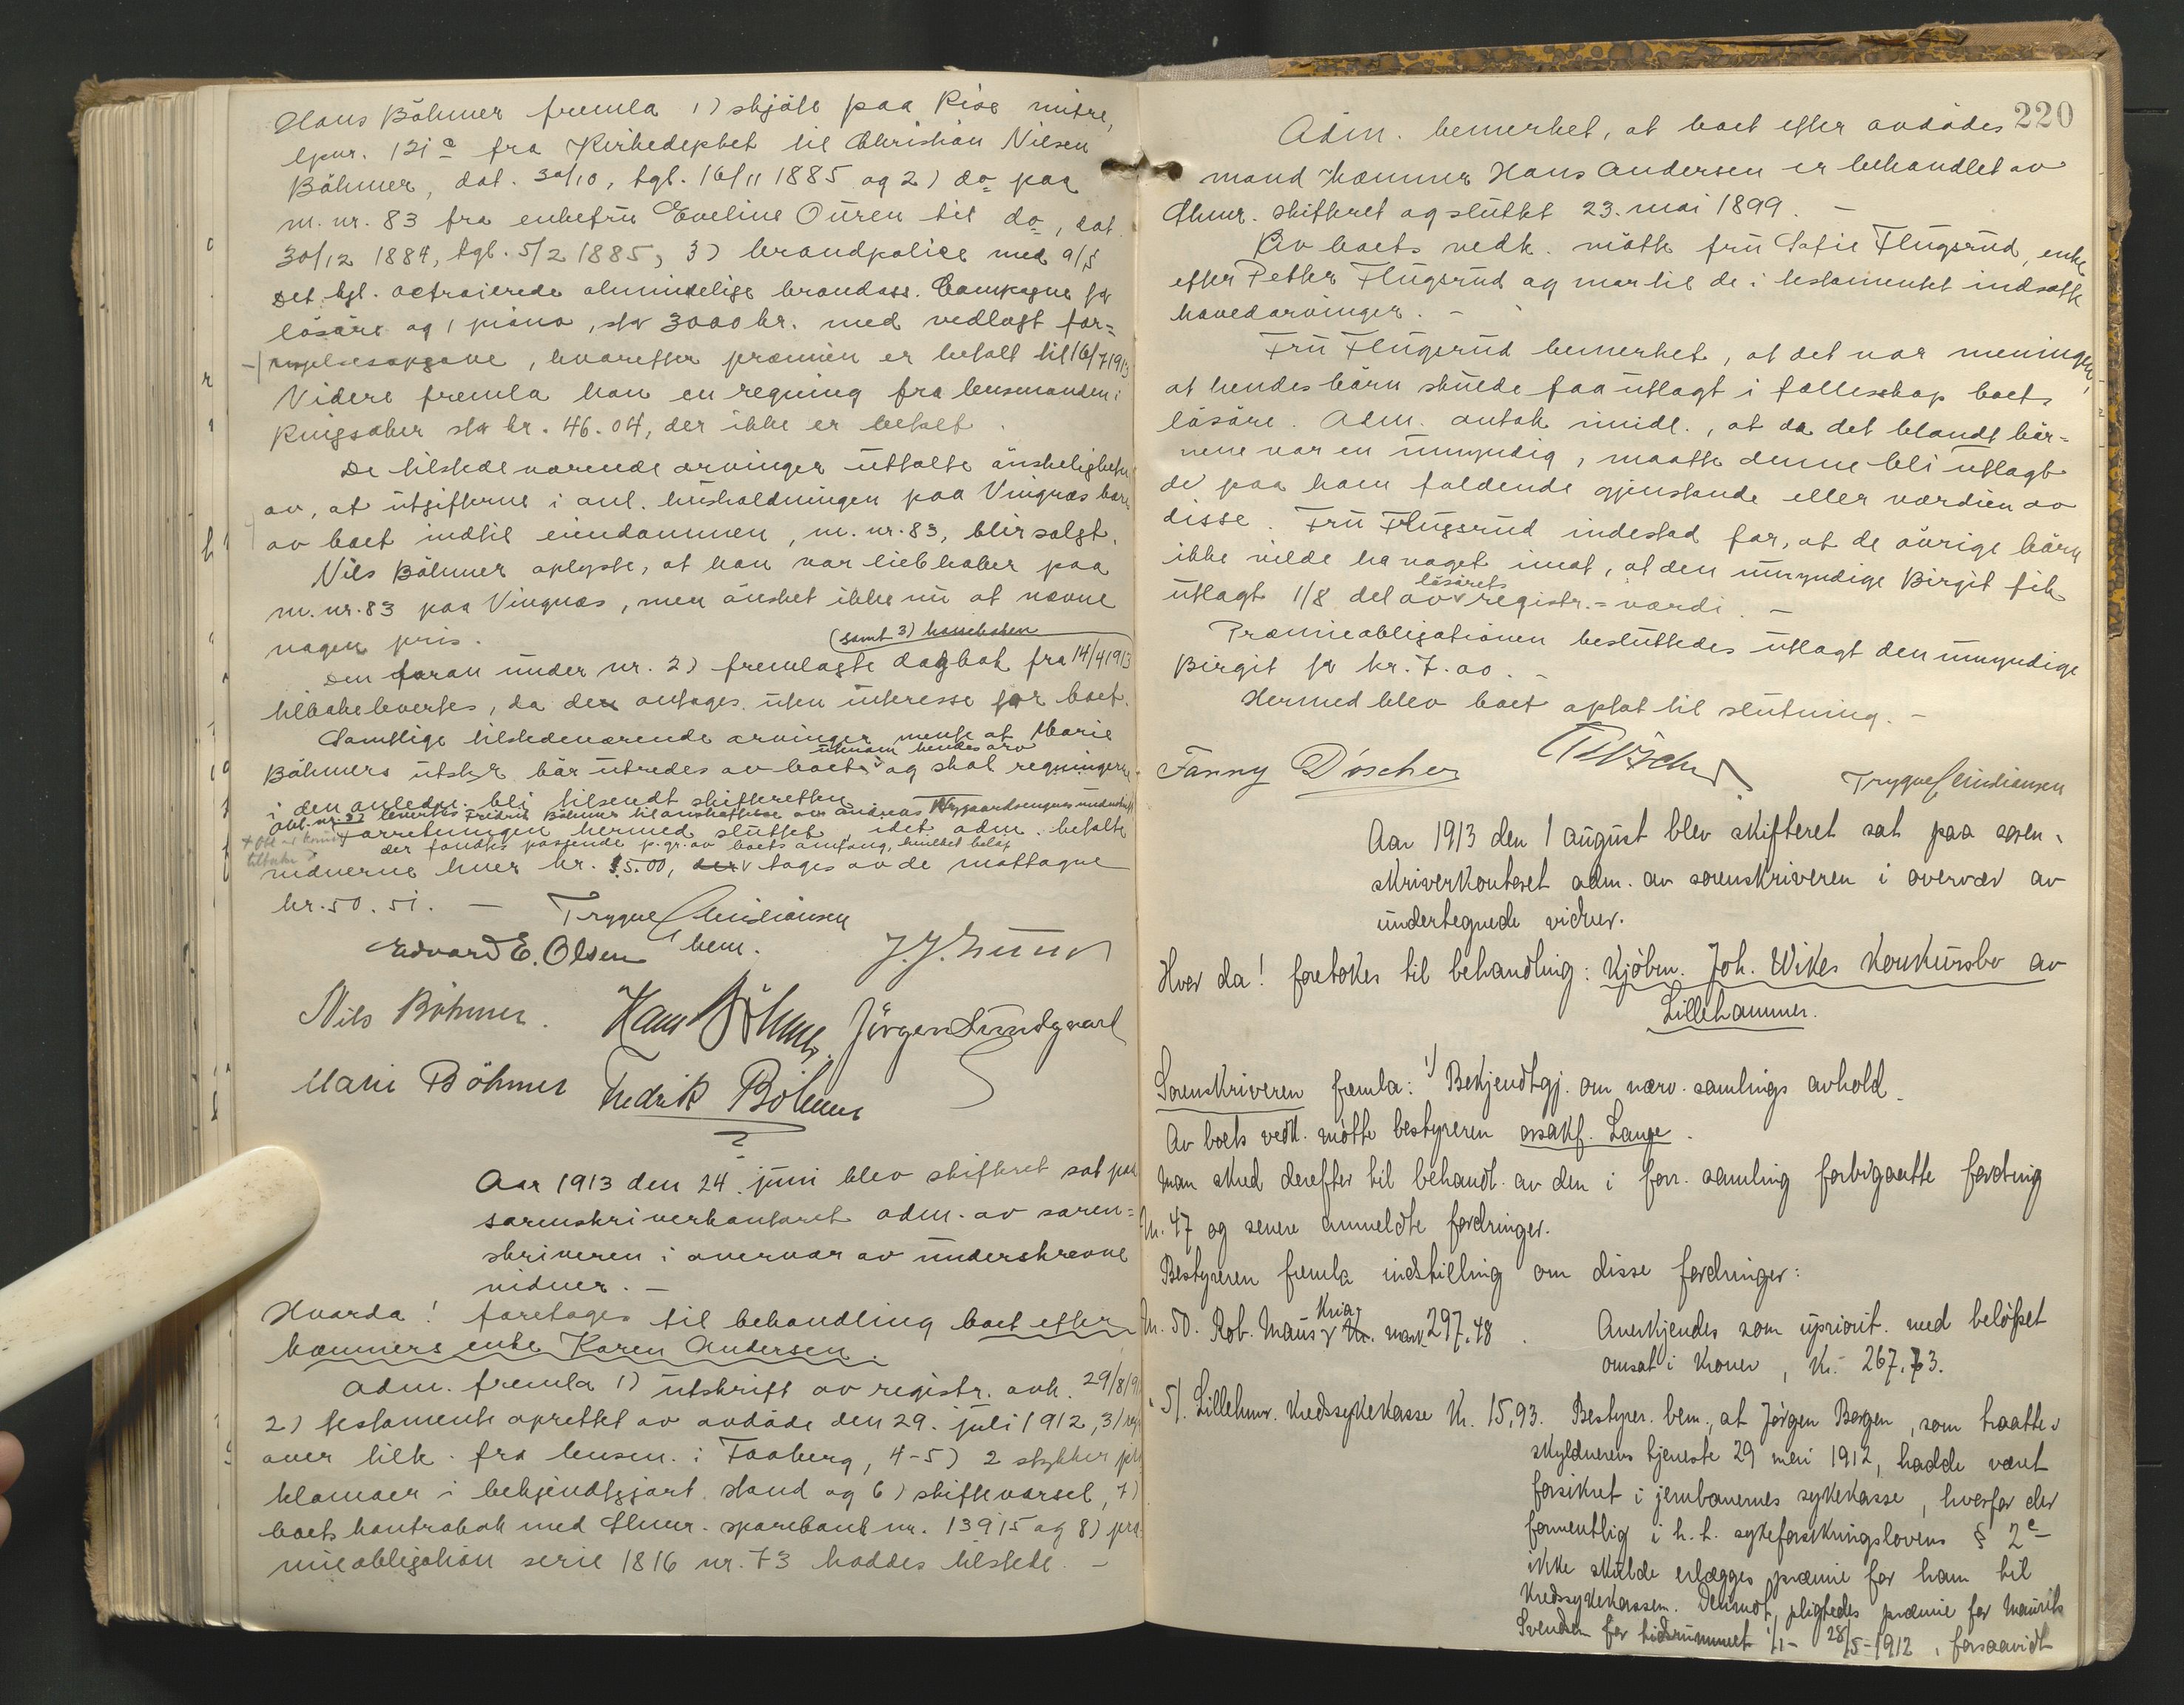 Hans Böhmer fremla 1) skjöte paa Rise nitre,
lpnr. 121 a fra Kirkedeptet til Christian Nilsen
Böhmer, dat. 30/10, tgl. 16/11 1885 og 2) do paa
m. nr. 83 fra enkefru Eveline Ouren til do, dat.
30/12 1884, tgl. 5/2 1885, 3) brandpolice med a/s
Det kgl. octroierede almindelige brandass. Compagne for
lösöre og 1 piano, stor 3000 kr. med vedlagt for=
nyelsesopgave, hvorefter præmien er betalt til 16/7 1913
Videre fremla han en regning fra lensmanden i
Ringsaker stor kr. 46.04, der ikke er betalt.
De tilstedeværende arvinger uttalte önskeligheten
av, at utgifterne i anl. husholdningen paa Vingnæs bæres
av boet indtil eiendommen, m. nr. 83, blir solgt.
Nils Böhmer oplyste, at han var liebhaber paa
m. nr. 83 paa Vingnæs, men önsket ikke nu at nævne
nogen pris.
(samt 3) kasseboken
Den foran under nr. 2) fremlagte dagbok fra 14/4 1913
tilbakeleverses, da den antages uten interesse for boet.
Samtlige tilstedeværende arvinger mente at Marie
utenom hendes arv
Böhmers utstyr bör utredes av boet og skal regningerne
i den anledn. bli tilsendt skifteretten
Obl. nr. 32 levertes Fridrik Böhmer til anskaffelse av Andreas Nygaardsengens underskrift
+ Obl er kommet Forretningen hermed sluttet, idet adm. betalte
tilbake der fandtes passende p. gr. av boets omfang, hvilket beløp
vidnerne hver kr. 5.00, der tages av de mottagne
kr. 50.51. — Trygve Christiansen
Edvard E. Olsen bem. J. J. Lund
Nils Böhmer. Hans Böhmer. Jörgen Lundgaard
Marie Böhmer Fredrik Böhmer
Aar 1913 den 24. juni blev skifteret sat paa
sorenskriverkontoret adm. av soren=
skriveren i overvær av underskrevne
vidner. —
Hvorda! foretages til behandling boet efter
kæmners enke Karen Andersen.
Adm. fremla 1) utskrift av registr. avh. 29/8/91
2) testamente oprettet av avdöde den 29. juli 1912, 3)
over tilk. fra lensm. i Faaberg, 4-5) 2 stykker pro
klamaer i bekjendtgjort stand og 6) skiftevarsel, 7)
boets kontrabok med Lhmr. sparebank nr. 13915 og 8) præ
mieobligation serie 1816 nr. 73 haddes tilstede. —
220
Adm. bemerket, at boet efter avdödes
mand kæmner Hans Andersen er behandlet av
Lhmr. skifteret og sluttet 23. mai 1899. —
Av boets vedk. mötte fru Sofie Flugsrud, enke
efter Petter Flugsrud og mor til de i testamentet indsatte
hovedarvinger. —
Fru Flugsrud bemerket, at det var meningen,
at hendes börn skulde faa utlagt i fællesskap boets
lösöre. Adm. antok imidl., at da det blandt bör=
nene var en umyndig, maatte denne bli utlagt
de paa ham faldende gjenstande eller værdien av
disse. Fru Flugsrud indestod for, at de övrige börn
ikke vilde ha noget imot, at den umyndige Birgit fik
lösörets
utlagt 1/8 del av registr.=værdi. —
Præmieobligationen besluttedes utlagt den umyndige
Birgit for kr. 7.00. —
Hermed blev boet optat til slutning. —
Fanny Döscher Trygve Christiansen
Aar 1913 den 1 august blev skifteret sat paa soren-
skriverkontoret adm. av sorenskriveren i overvær av
undertegnede vidner.
Hvor da! foretokes til behandling: Kjöbm. Joh. Wikes konkursbo av
Lillehammer.
Sorenskriveren fremla: 1) Bekjendtgj. om nærv. samlings avhold.
Av boets vedk. mötte bestyreren orsakf. Lange.
Man skred derefter til behandl. av den i forr. samling forbigaatte fordring
Nr. 47 og senere anmeldte fordringer.
Bestyreren fremla indstilling om disse fordringer:
Nr. 50. Rob. Maus Kria, mark 297.48. Anerkjendes som uprivrit. med belöpet
omsat i kroner, Kr. 267.73.
" 51. Lillehmr. kredssykekasse Kr. 15,93. Bestyrer. bem., at Jörgen Borgen, som traatte i
skyldnerens tjeneste 29 mai 1912, hadde været
forsikret i jernbanernes sykekasse, hvorfor der
formentlig i h. t. sykeforsikringslovens § 2 c
ikke skulde erlægges præmie for ham til
kredssykekassen. Derimot pligtedes præmie for Maurits
Svendsen for tidsrummet 1/1 - 28/5-1912, forsaavidt